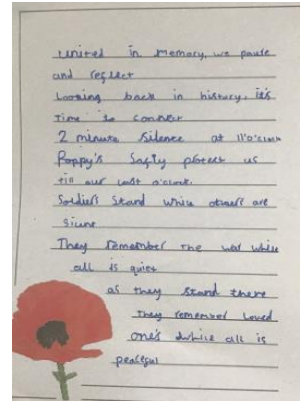 united in memory, we pause
and reflect
Looking back in history, it's
time to connect
2 minute silence at 11'o'clock
Poppy's safty protect us
till our last o'clock.
Soldiers stand while others are
They remember the war while
all is quiet
as they stand there
they remember loved
one's while all is
peaceful